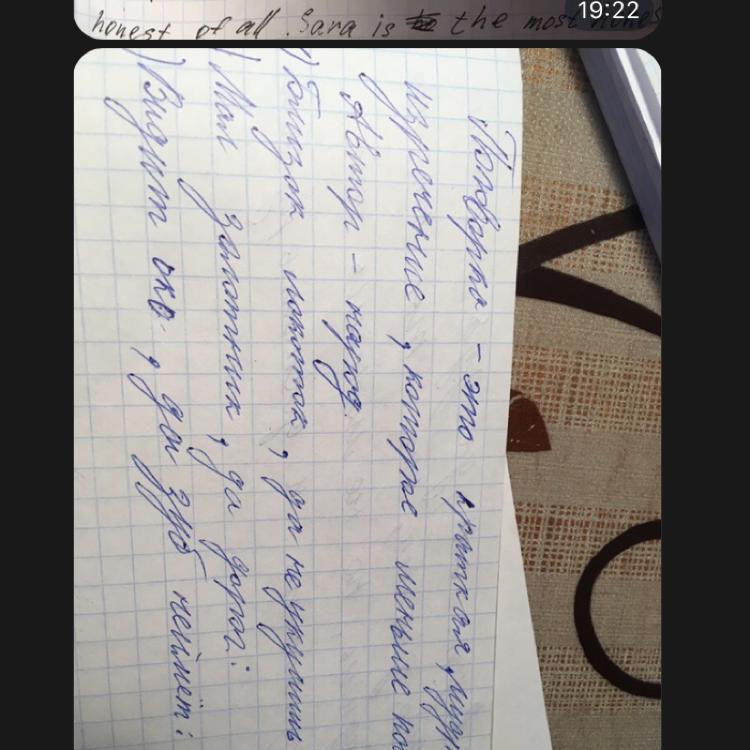 19:22
honest of all. Sara is the most hones
Поговорка - это крыткая, мудр
изречение, которое меньше по
Автор - народ.
) Близок локоток, да не укусишь
) Мал золотник, да дорог.
) Видит око, да зуб неймёт.